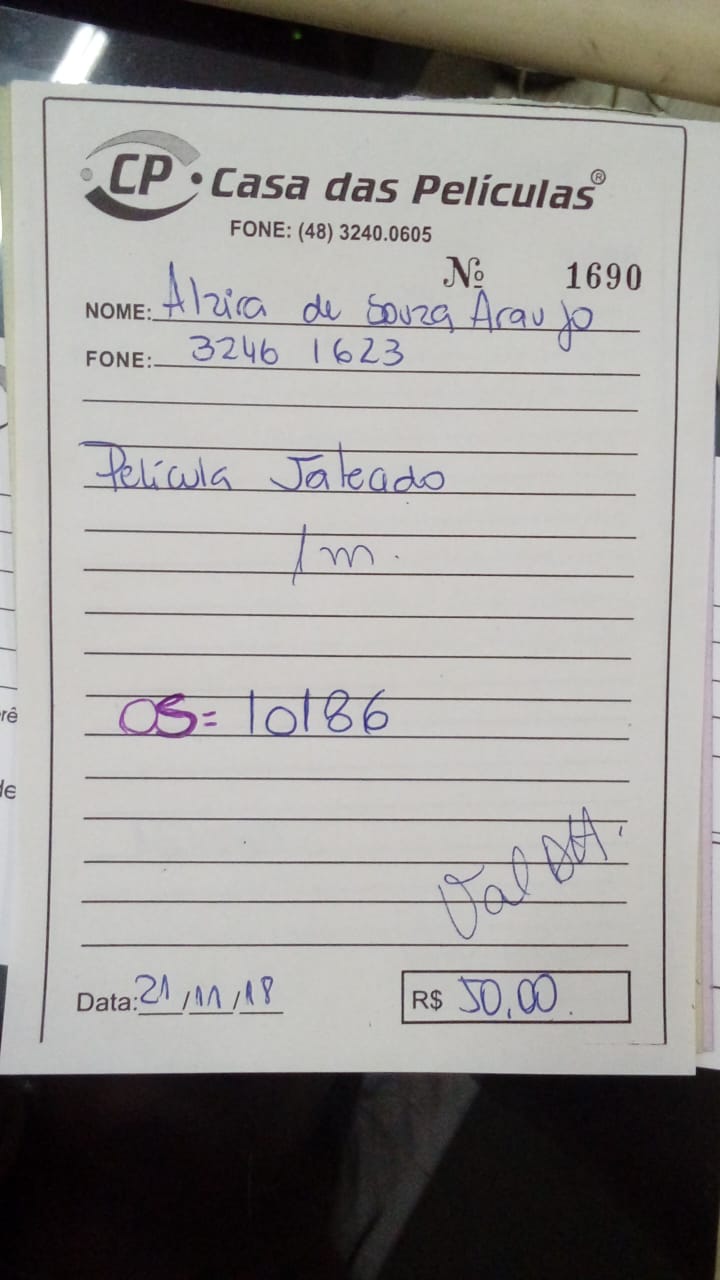 CP Casa das Películas®
FONE: (48) 3240.0605
Nº 1690
NOME: Alzira de Souza Araujo
FONE: 3246 1623
Película Jateado
1m.
OS= 10186
Val
Data: 21/11/18 R$ 50,00
rê
de